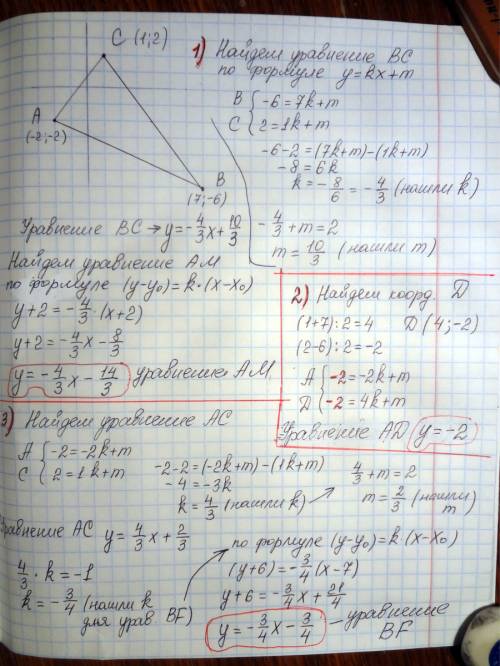 C (1;2)
A
(-2;-2)
B
(7;-6)
1) Найдем уравнение BC
по формуле y=kx+m
B { -6=7k+m
C { 2=1k+m
-6-2=(7k+m)-(1k+m)
-8=6k
k=-8/6=-4/3 (нашли k)
-4/3+m=2
m=10/3 (нашли m)
Уравнение BC → y=-4/3x+10/3
Найдем уравнение AM
по формуле (y-y₀)=k·(x-x₀)
y+2=-4/3·(x+2)
y+2=-4/3x-8/3
y=-4/3x-14/3 уравнение AM
2) Найдем коорд. D
(1+7):2=4 D(4;-2)
(2-6):2=-2
A { -2=-2k+m
D { -2=4k+m
Уравнение AD y=-2
3) Найдем уравнение AC
A { -2=-2k+m
C { 2=1k+m
-2-2=(-2k+m)-(1k+m)
-4=-3k
k=4/3 (нашли k)
4/3+m=2
m=2/3 (нашли m)
Уравнение AC y=4/3x+2/3
4/3·k=-1
k=-3/4 (нашли k
для урав BF)
по формуле (y-y₀)=k·(x-x₀)
(y+6)=-3/4(x-7)
y+6=-3/4x+21/4
y=-3/4x-3/4 - уравнение
BF